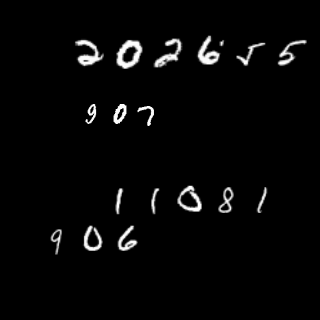 202655
907
11081
906